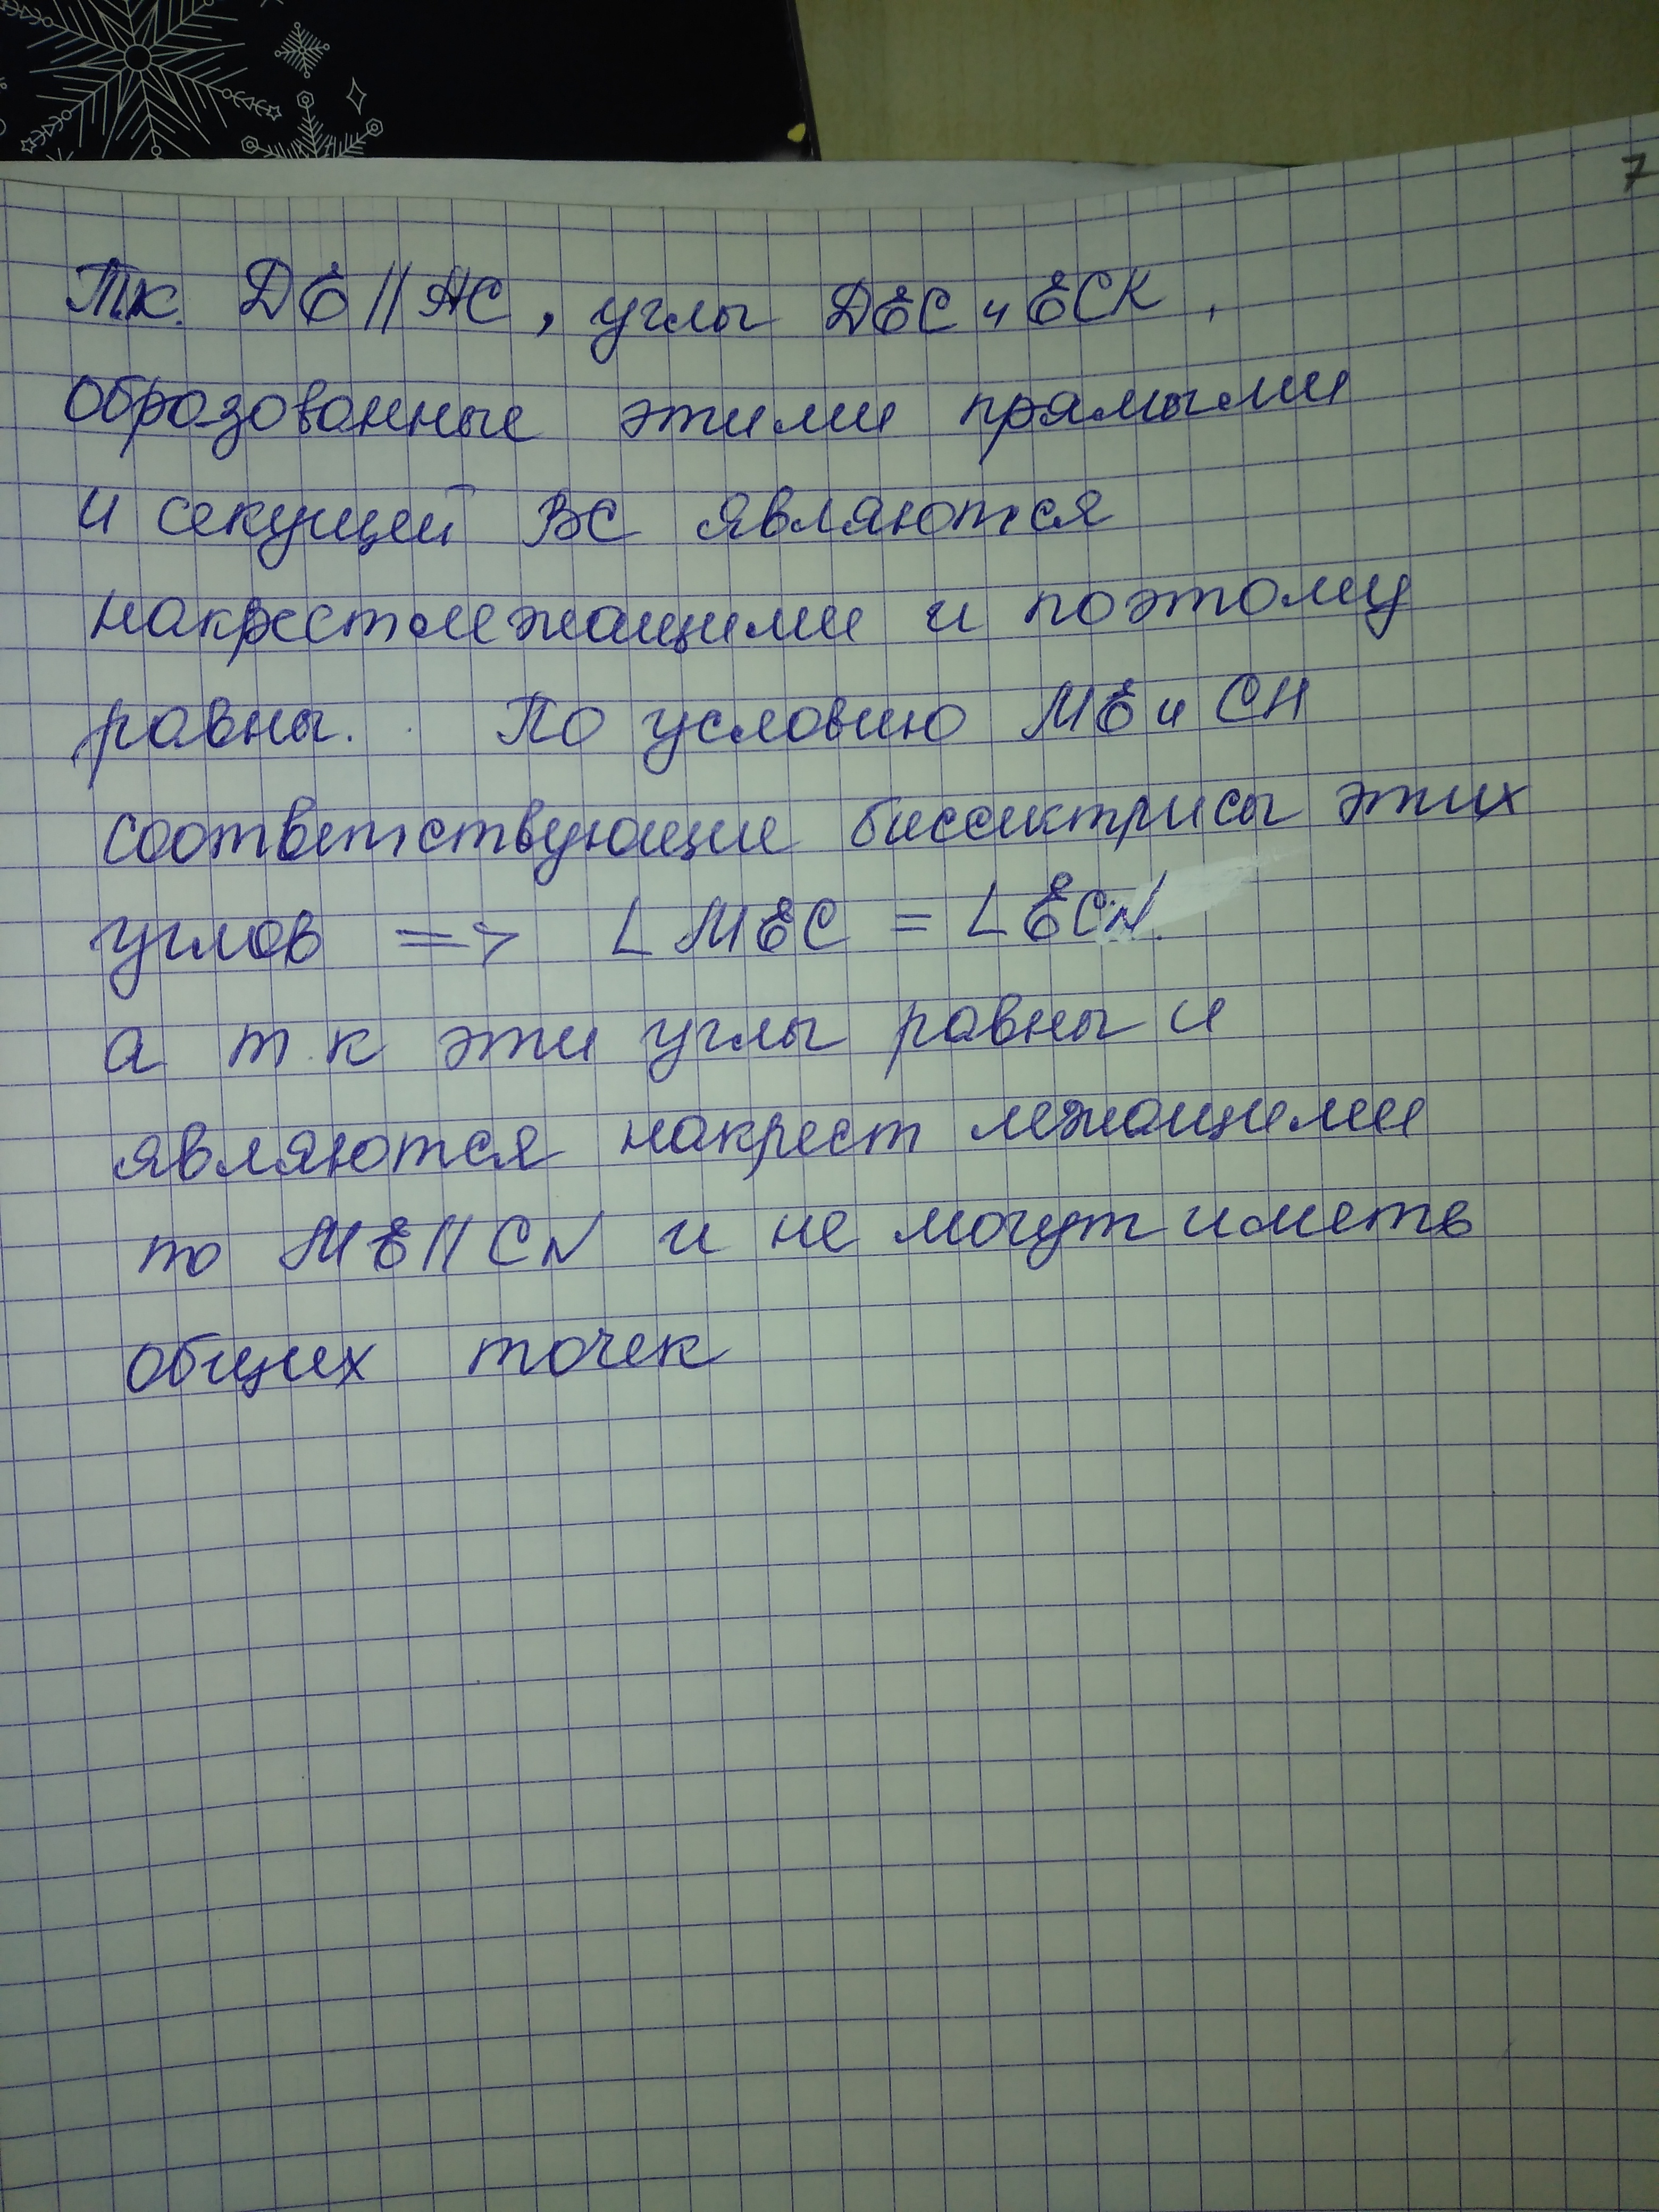 7
Т.к. DE || AC, углы DEC и ECK,
образованные этими прямыми
и секущей BC являются
накрестлежащими и поэтому
равны. По условию ME и CH
соответствующие биссектрисы этих
углов => ∠ MEC = ∠ ECN.
а т.к эти углы равны и
являются накрест лежащими
то ME || CN и не могут иметь
общих точек